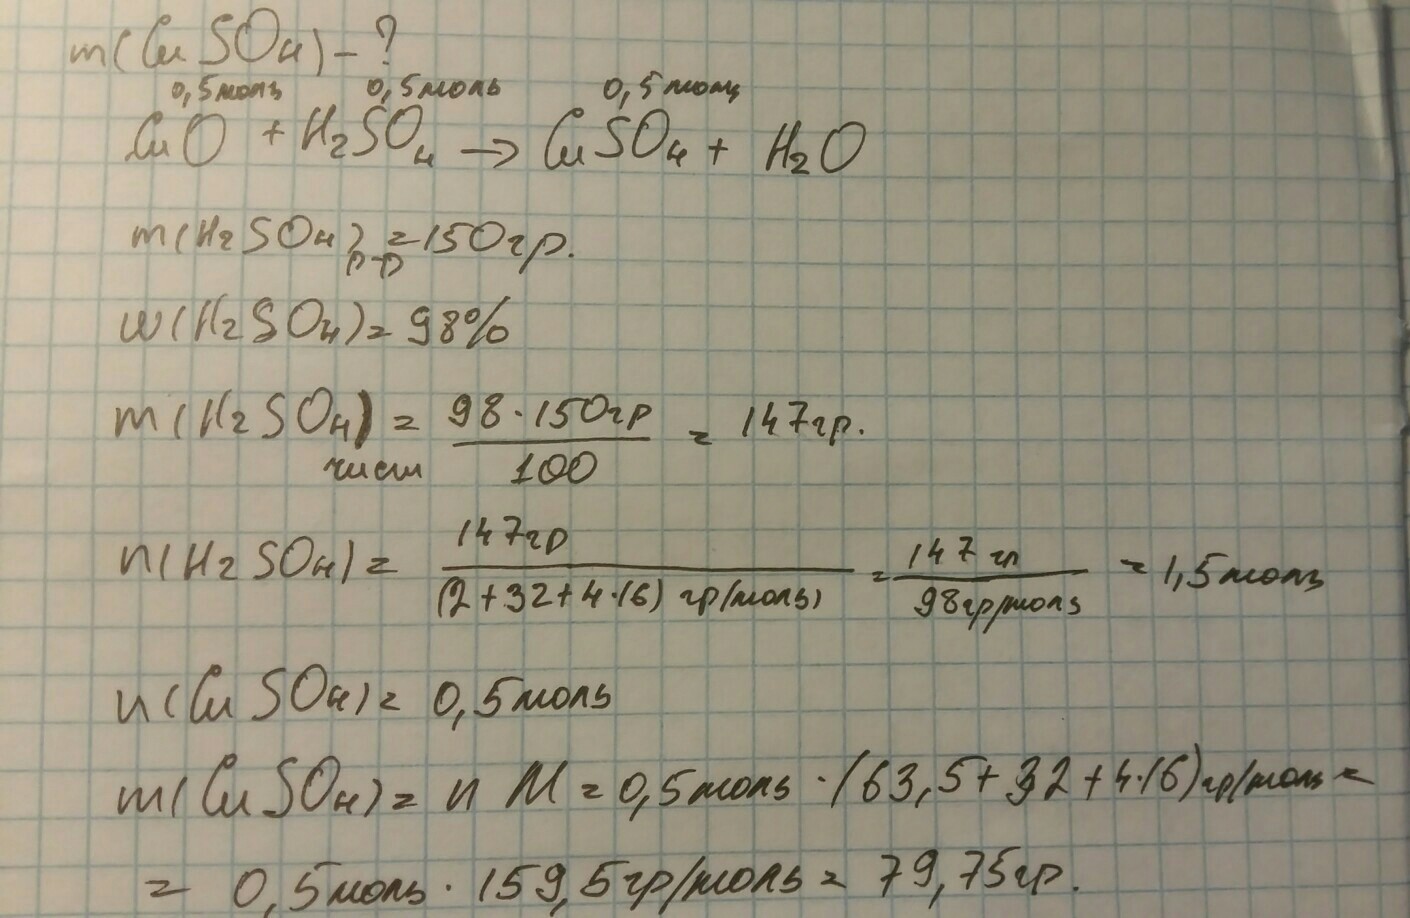 m(CuSO4) - ?
0,5моль 0,5моль 0,5моль
CuO + H2SO4 → CuSO4 + H2O
m(H2SO4)р-р = 150гр.
w(H2SO4) = 98%
m(H2SO4)чист = 98·150гр/100 = 147гр.
n(H2SO4) = 147гр/(2+32+4·16) гр/моль = 147 гр/98гр/моль = 1,5моль
n(CuSO4) = 0,5моль
m(CuSO4) = n M = 0,5моль · (63,5+32+4·16)гр/моль =
= 0,5моль · 159,5гр/моль = 79,75гр.